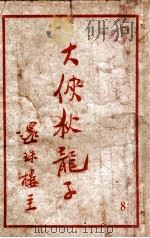 大俠狄龍子
還珠樓主
8